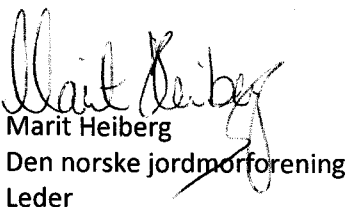 Marit Heiberg
Marit Heiberg
Den norske jordmorforening
Leder